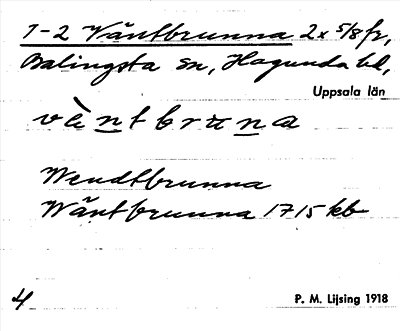 1-2 Väntbrunna 2x 5/8 fr,
Balingsta sn, Hagunda hd,
Uppsala län
vä̀ntbruna
Wendtbrunna
Wäntbrunna 1715 kb
4
P. M. Lijsing 1918